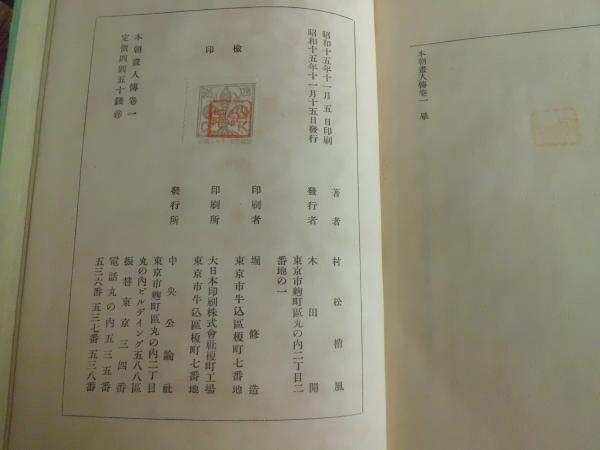 本朝畫人傳卷一 畢
昭和十五年十一月五日印刷
昭和十五年十一月十五日發行
檢印
本朝畫人傳卷一
定價四圓五十錢
著者 村松梢風
發行者 木田開
東京市麴町區丸の内二丁目二
番地の一
印刷者 堀修造
東京市牛込區榎町七番地
印刷所 大日本印刷株式會社榎町工場
東京市牛込區榎町七番地
發行所 中央公論社
東京市麴町區丸の内二丁目
丸の内ビルデイング五八八區
振替東京三四番
電話丸の内五三五番
五三六番 五三七番 五三八番